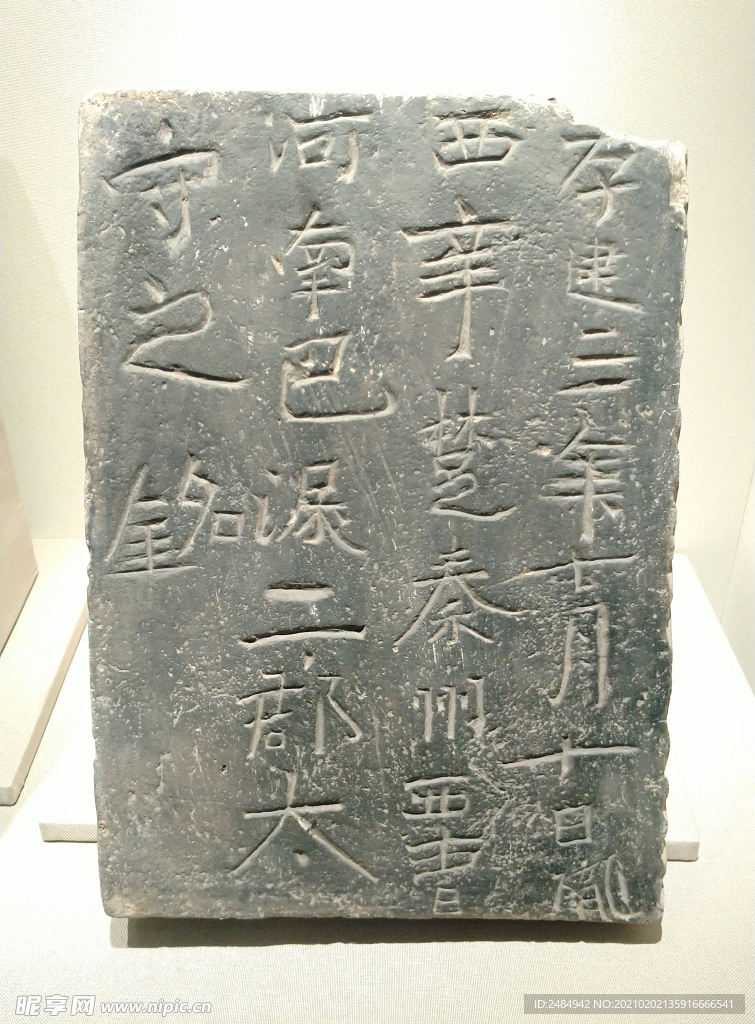 孝建二年十月十日隴
西辛楚秦州西曹
河南巴渠二郡太
守之銘
昵享网 www.nipic.cn
ID:2484942 NO:20210202135916666541